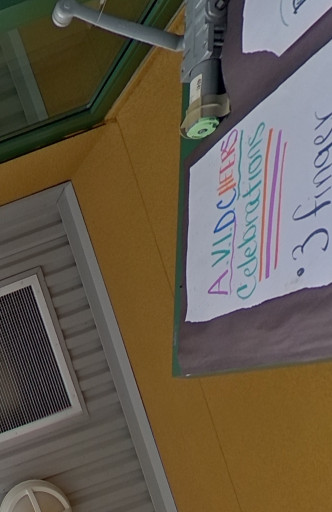 A.V.I.D CHEERS
Celebrations
• 3 finger